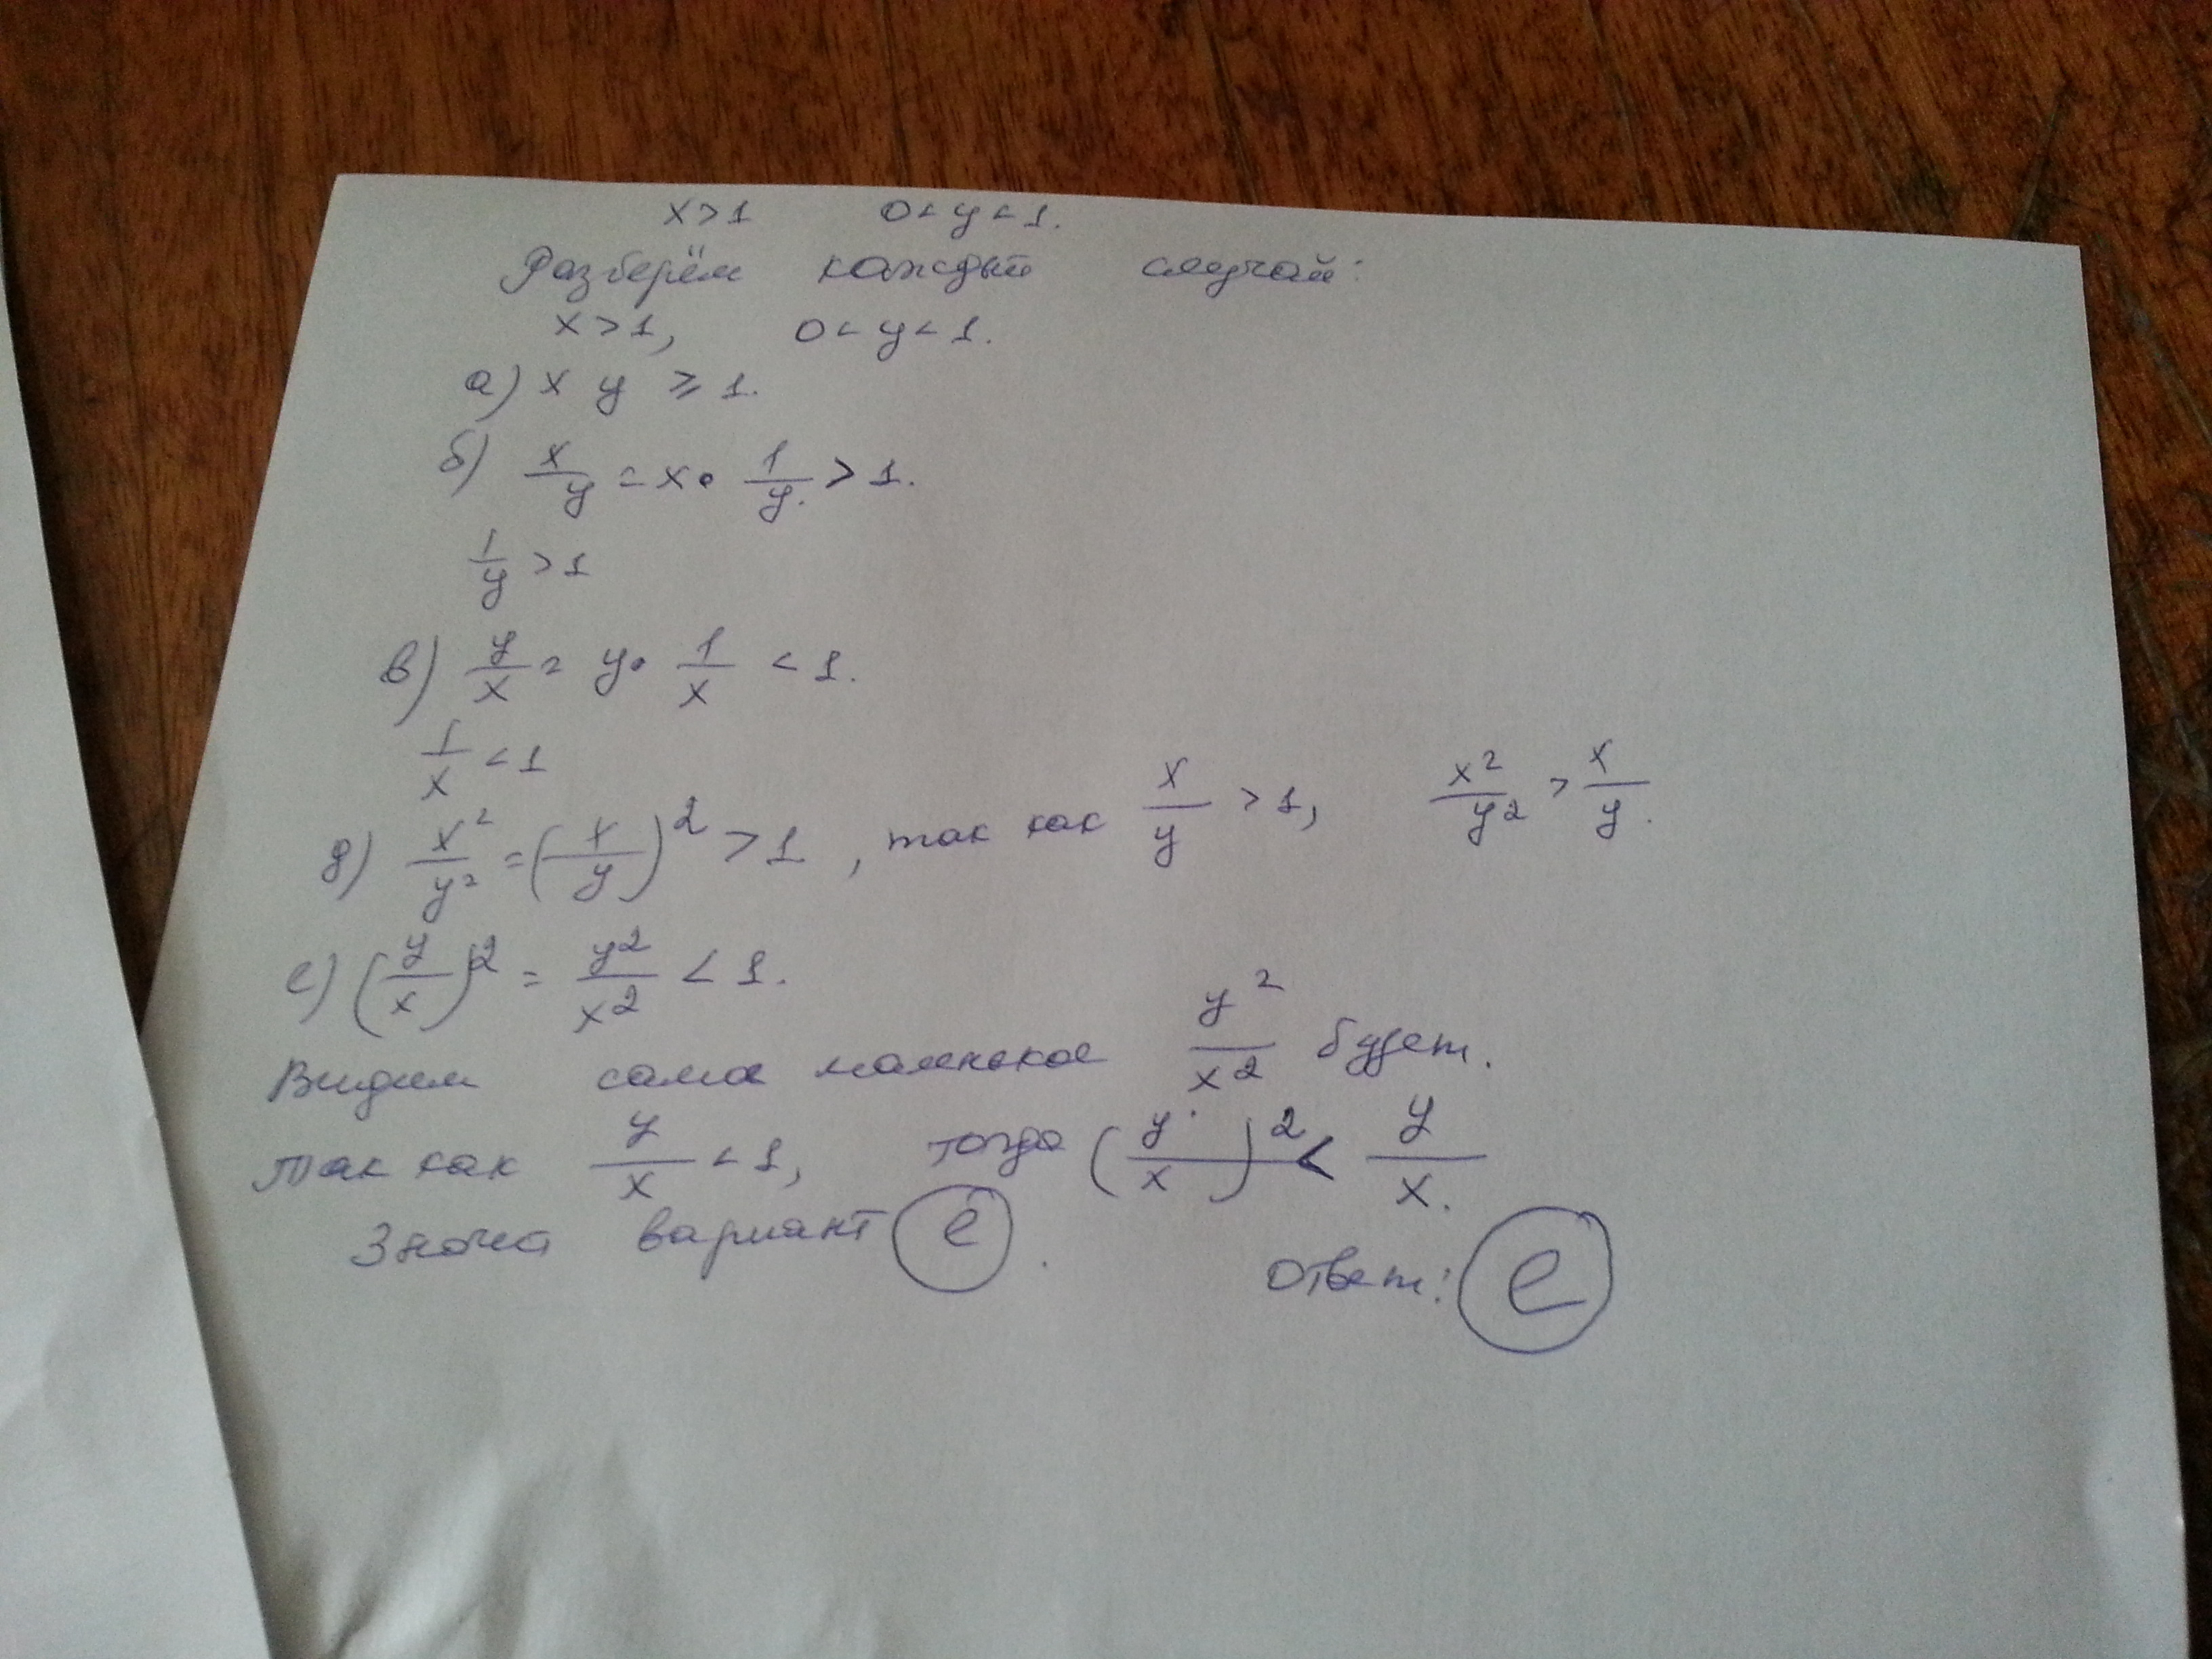 x>1 0<y<1.
Разберём каждый случай:
x>1, 0<y<1.
а) x y ≥ 1.
б) x/y = x • 1/y. > 1.
1/y > 1
в) y/x = y • 1/x < 1.
1/x < 1
д) x²/y² = (x/y)² > 1, так как x/y > 1, x²/y² > x/y.
е) (y/x)² = y²/x² < 1.
Видим само маленькое y²/x² будет.
Так как y/x < 1, тогда (y/x)² < y/x.
вариант е.
Ответ: е